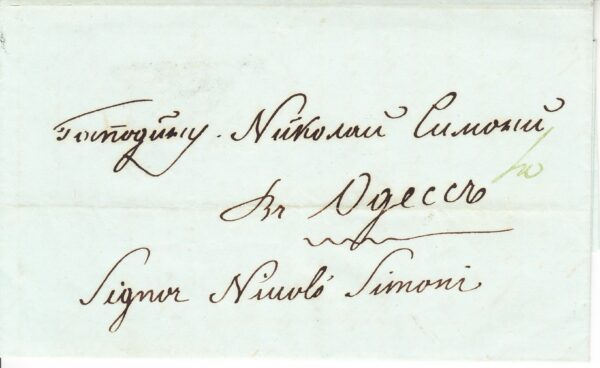 Господину Николай Симоний
Въ Одессъ
Signor Nicolò Simoni